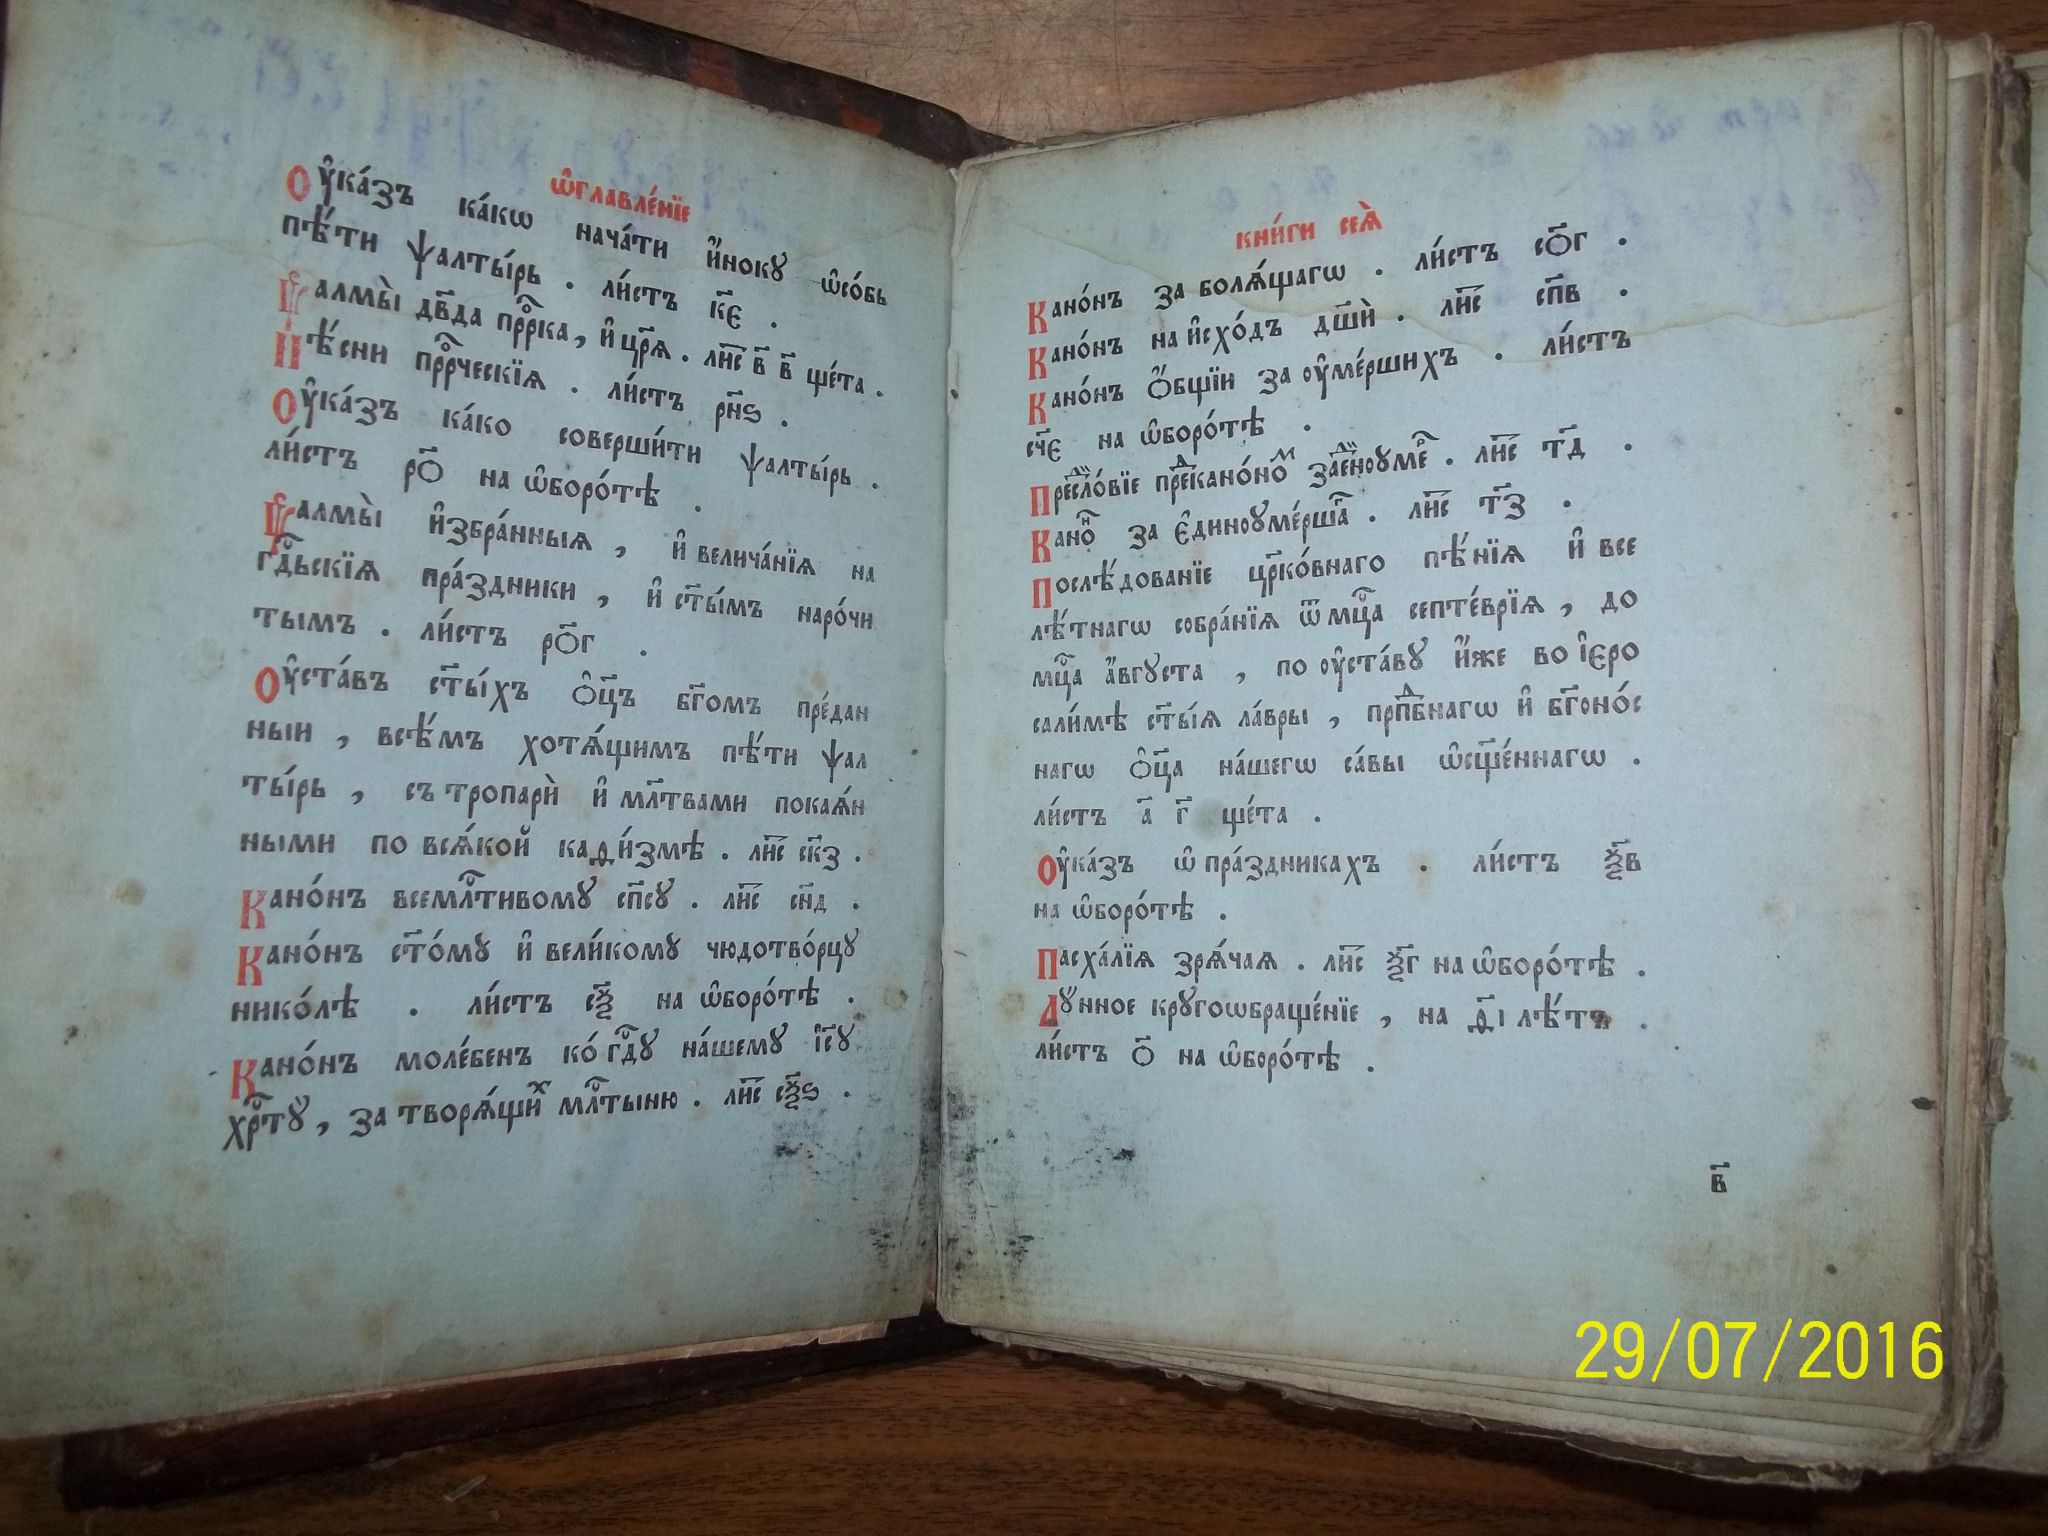 ѡ҆главле́нїе
Оу҆ка́зъ ка́кѡ нача́ти и҆́ноку ѡ҆со́бь
пѣ́ти ѱалты́рь . ли́стъ к҃є .
Ѱалмы̀ дв҃да прⷪ҇рка, и҆ цр҃ѧ . ли҇с в҃ в҃ ще́та .
Пѣ́сни прⷪ҇рческїѧ . ли́стъ рн҃ѕ .
Оу҆ка́зъ ка́ко соверши́ти ѱалты́рь .
ли́стъ ро҃ на ѡ҆боро́тѣ .
Ѱалмы̀ и҆збра́нныѧ , и҆ велича́нїѧ на
гдⷭ҇ьскїѧ пра́здники , и҆ ст҃ы́мъ наро́чи
тымъ . ли́стъ ро҃г .
Оу҆ста́въ ст҃ы́хъ ѻ҆ц҃ъ бг҃омъ пре́дан
ныи , всѣ́мъ хотѧ́щимъ пѣ́ти ѱал
ты́рь , съ тропарѝ и҆ млⷭ҇твами покаѧ́н
ными по всѧ́кой кади́змѣ . ли҇с ск҃з .
Кано́нъ всемлⷭ҇тивому сп҃су . ли҇с сн҃д .
Кано́нъ ст҃о́му и҆ вели́кому чюдотво́рцу
нико́лѣ . ли́стъ сѯ҃ на ѡ҆боро́тѣ .
Кано́нъ моле́бенъ ко́ гдⷭ҇у на́шему і҆с҃у
хрⷭ҇тꙋ̀ , за творѧ́щиⷯ млⷭ҇тыню . ли҇с сѯ҃ѕ .
кни́ги сеѧ̀
Кано́нъ за болѧ́щагѡ . ли́стъ со҃г .
Кано́нъ на и҆схо́дъ дш҃ѝ . ли҇с сп҃в .
Кано́нъ ѻ҆́бщїи за оу҆ме́ршихъ . ли́стъ
сч҃є на ѡ҆боро́тѣ .
Кано҇ⷩ за є҆диноуме́ршаⷢ҇ . ли҇с т҃з .
Послѣ́дованїе цр҃ко́внаго пѣ́нїѧ и҆ все
лѣ́тнагѡ собра́нїѧ ѿ мцⷭ҇а септе́врїѧ , до
мцⷭ҇а а҆́вгуста , по оу҆ста́ву и҆́же во і҆єро
сали́мѣ ст҃ы́ѧ ла́вры , прпⷣбнагѡ и҆ бг҃оно́с
нагѡ ѻ҆ц҃а на́шегѡ са́вы ѡ҆сщ҃е́ннагѡ .
ли́стъ а҃ г҃ ще́та .
Оу҆ка́зъ ѡ҆ пра́здникахъ . ли́стъ ѯ҃в
на ѡ҆боро́тѣ .
Пасха́лїѧ зрѧ́чаѧ . ли҇с ѯ҃г на ѡ҆боро́тѣ .
Лу́нное кругоѡбраще́нїе , на ѳ҃і лѣ́тъ .
ли́стъ ѻ҃ на ѡ҆боро́тѣ .
в҃
29/07/2016